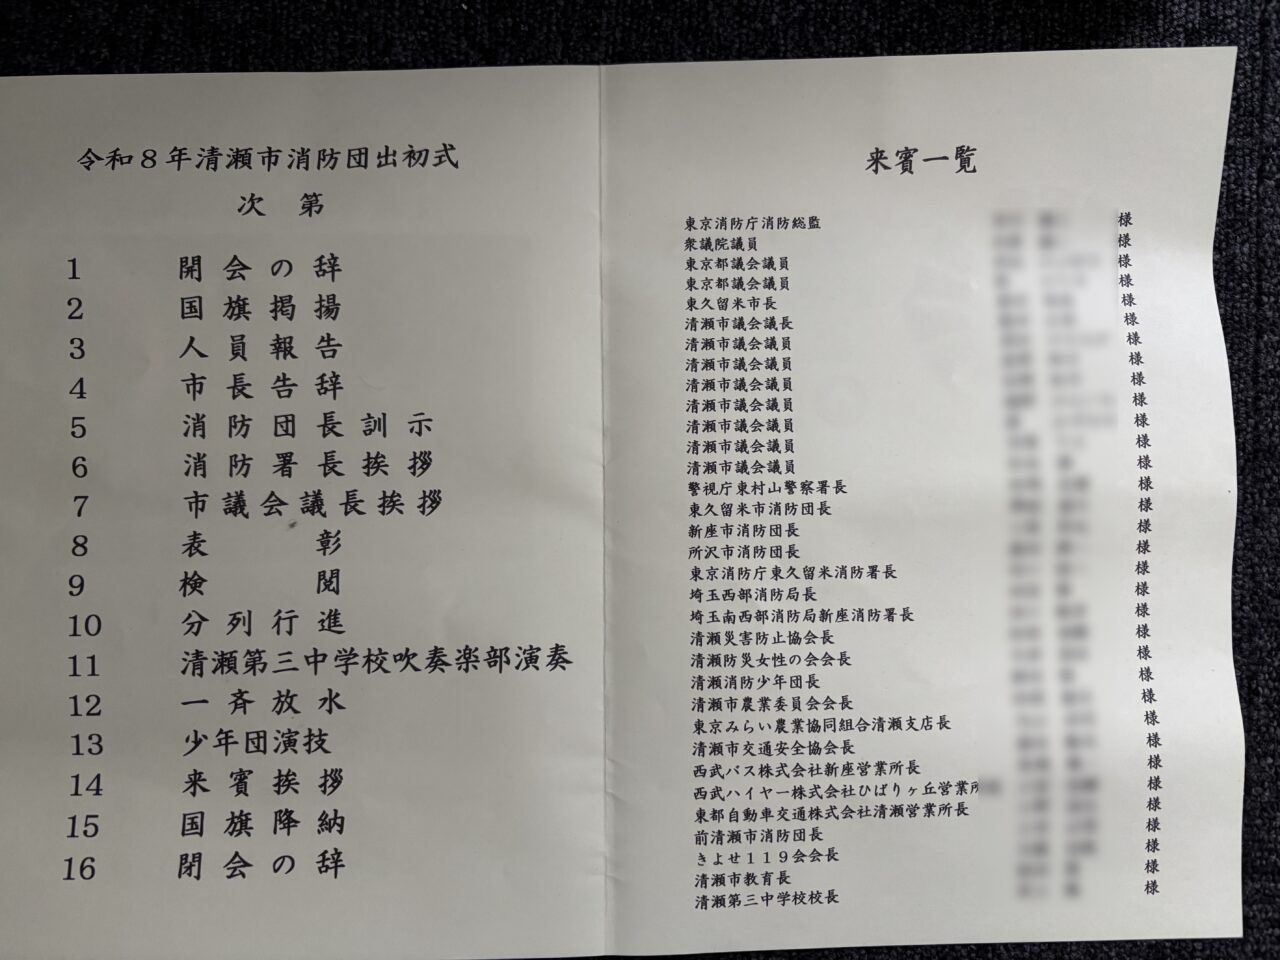 令和８年清瀬市消防団出初式
次　第
1　開会の辞
2　国旗掲揚
3　人員報告
4　市長告辞
5　消防団長訓示
6　消防署長挨拶
7　市議会議長挨拶
8　表彰
9　検閲
10　分列行進
11　清瀬第三中学校吹奏楽部演奏
12　一斉放水
13　少年団演技
14　来賓挨拶
15　国旗降納
16　閉会の辞
来賓一覧
東京消防庁消防総監　様
衆議院議員　様
東京都議会議員　様
東京都議会議員　様
東久留米市長　様
清瀬市議会議長　様
清瀬市議会議員　様
清瀬市議会議員　様
清瀬市議会議員　様
清瀬市議会議員　様
清瀬市議会議員　様
清瀬市議会議員　様
清瀬市議会議員　様
警視庁東村山警察署長　様
東久留米市消防団長　様
新座市消防団長　様
所沢市消防団長　様
東京消防庁東久留米消防署長　様
埼玉西部消防局長　様
埼玉南西部消防局新座消防署長　様
清瀬災害防止協会長　様
清瀬防災女性の会会長　様
清瀬消防少年団長　様
清瀬市農業委員会会長　様
東京みらい農業協同組合清瀬支店長　様
清瀬市交通安全協会長　様
西武バス株式会社新座営業所長　様
西武ハイヤー株式会社ひばりヶ丘営業所　様
東都自動車交通株式会社清瀬営業所長　様
前清瀬市消防団長　様
きよせ１１９会会長　様
清瀬市教育長　様
清瀬第三中学校校長　様